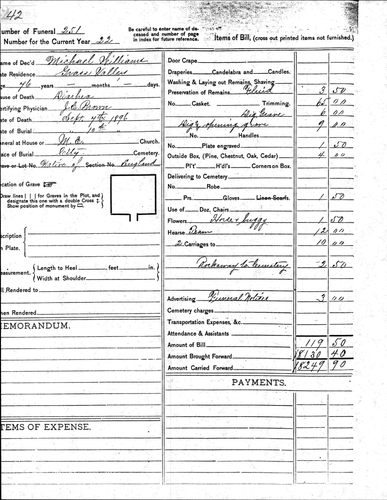 42
Number of Funeral 251
Number for the Current Year 22
Be careful to enter name of deceased and number of page in index for future reference.
Items of Bill, (cross out printed items not furnished.)
Name of Dec'd Michael Williams
Late Residence Grass Valley
Age 46 years months - days.
Cause of Death
Certifying Physician
Date of Death Sept 7th 1896
Date of Burial 10th "
Funeral at House of M. E. Church.
Place of Burial City Cemetery.
Grave or Lot No. Native of Section No. England
Location of Grave
Draw lines for Graves in the Plot, and designate this one with a double Cross
Show position of monument by
Description
on Plate.
Measurement. Length to Heel feet in.
Width at Shoulder
Bill Rendered to
When Rendered
MEMORANDUM.
ITEMS OF EXPENSE.
Door Crape
Draperies Candelabra and Candles.
Washing & Laying out Remains, Shaving
Preservation of Remains Fluid 3 50
No. Casket. Trimming. 65 00
Dig Grave 6 00
opening grave 9 00
No. Handles
Plate engraved 1 50
Outside Box, (Pine, Chestnut, Oak, Cedar) 4 00
Corners on Box.
Delivering to Cemetery
No. Robe
Prs. Gloves 1 50
Use of Doz. Chairs
Flowers Horse & buggy 1 50
Hearse Team 12 00
2 Carriages to 10 00
Rockaway to Cemetery 2 50
Advertising Funeral Notices 3 00
Cemetery charges
Transportation Expenses, &c.
Attendance & Assistants
Amount of Bill 119 50
Amount Brought Forward 18130 40
Amount Carried Forward 18249 90
PAYMENTS.